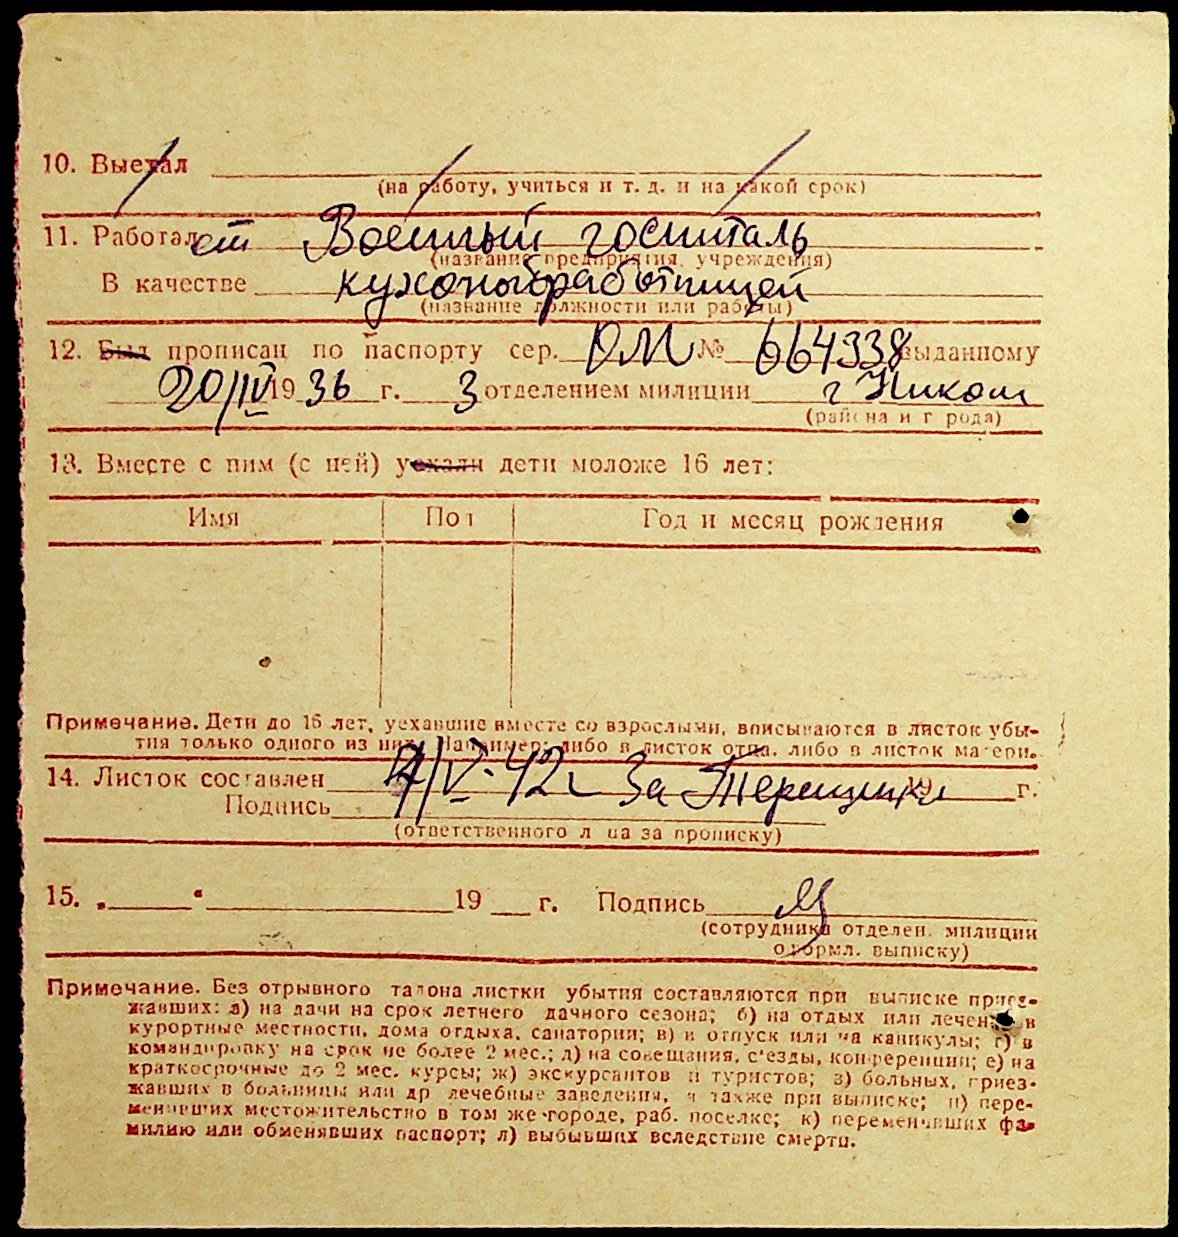 10. Выехал
(на работу, учиться и т. д. и на какой срок)
11. Работает Военный госпиталь
(название предприятия, учреждения)
В качестве кухоной работницей
(название должности или работы)
12. Был прописан по паспорту сер. ОМ № 664338 выданному
20/IV 1936 г. 3 отделением милиции г Никол
(района и города)
13. Вместе с ним (с ней) уехали дети моложе 16 лет:
Имя Пол Год и месяц рождения
Примечание. Дети до 16 лет, уехавшие вместе со взрослыми, вписываются в листок убы-
тия только одного из них. Например: либо в листок отца, либо в листок матери.
14. Листок составлен 4/V-42 г За Терещенко 19 г.
Подпись
(ответственного лица за прописку)
15. „ “ 19 г. Подпись
(сотрудника отделен. милиции
оформл. выписку)
Примечание. Без отрывного талона листки убытия составляются при выписке приез-
жавших: а) на дачи на срок летнего дачного сезона; б) на отдых или лечен. в
курортные местности, дома отдыха, санатории; в) в отпуск или на каникулы; г) в
командировку на срок не более 2 мес.; д) на совещания, с'езды, конференции; е) на
краткосрочные до 2 мес. курсы; ж) экскурсантов и туристов; з) больных, приез-
жавших в больницы или др лечебные заведения, а также при выписке; и) пере-
менивших местожительство в том же городе, раб. поселке; к) переменивших фа-
милию или обменявших паспорт; л) выбывших вследствие смерти.